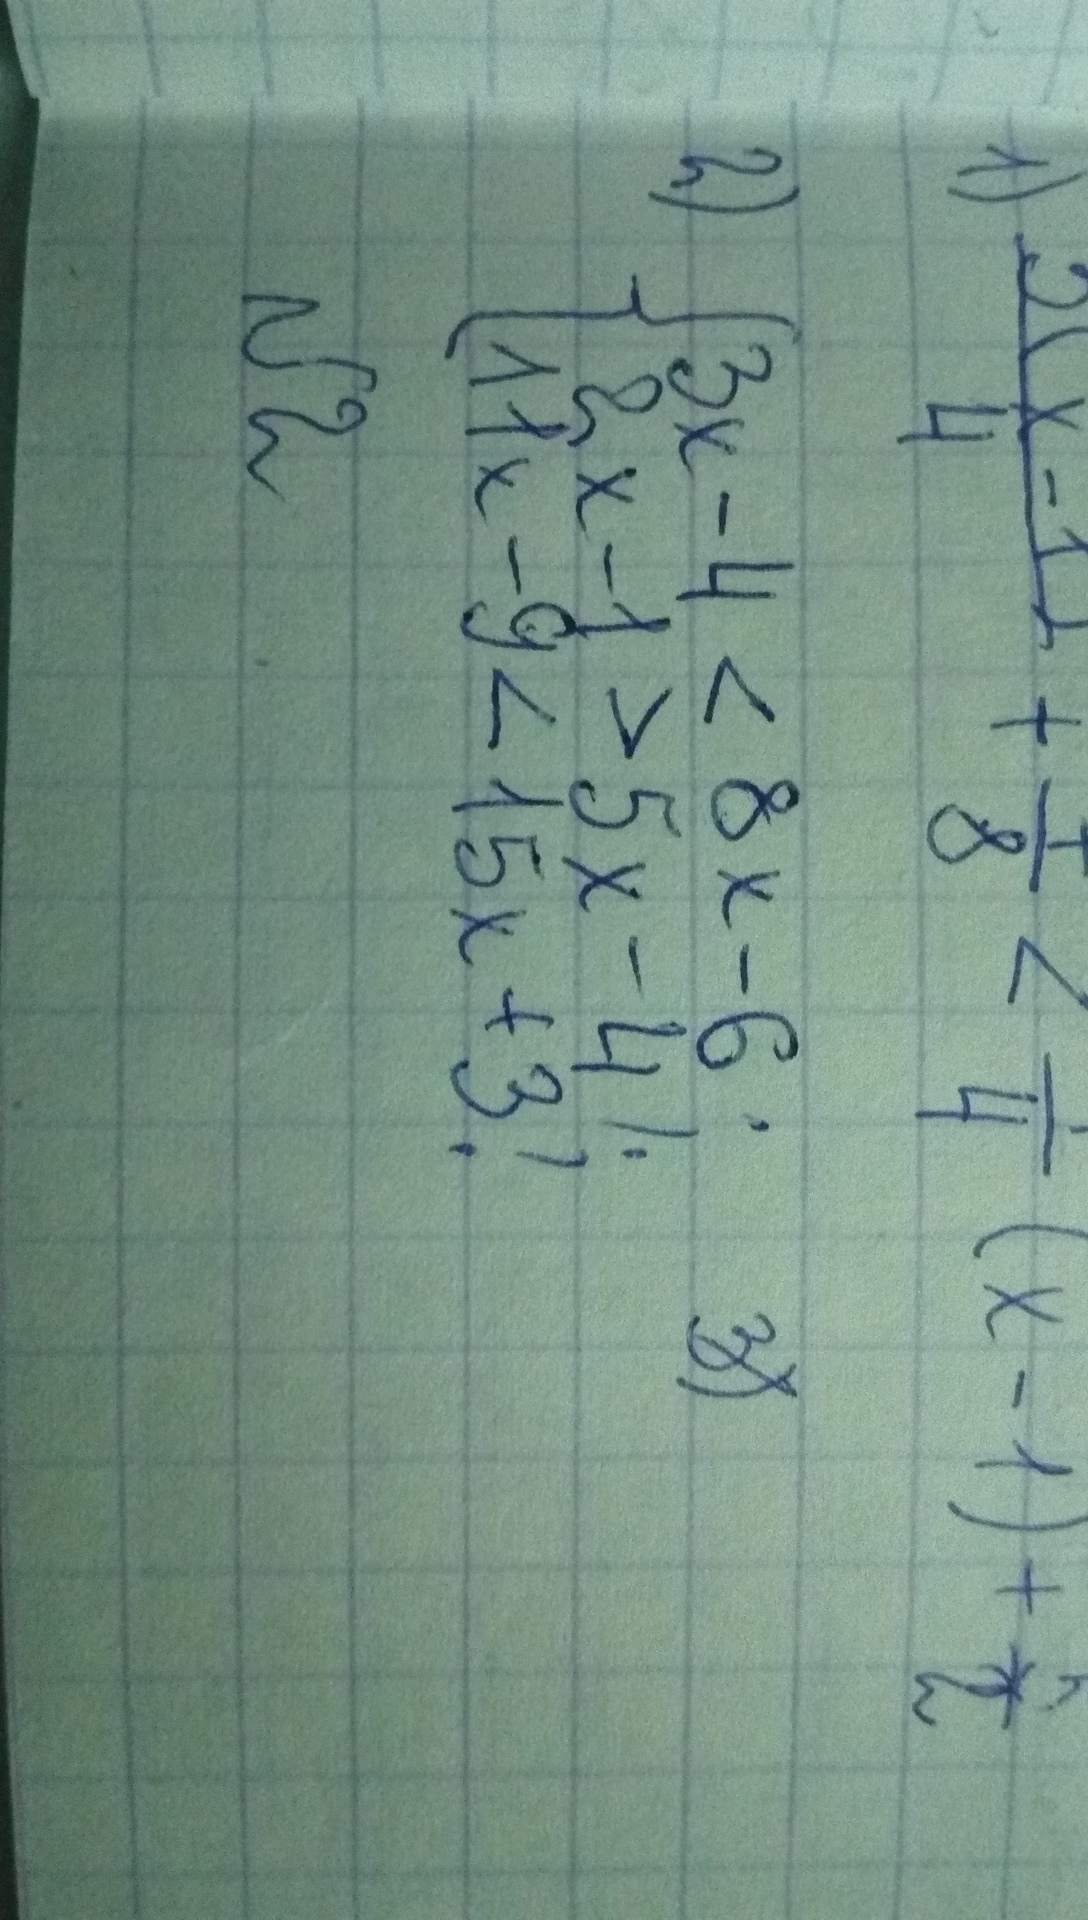 1) 3(x-1)/4 + 1/8 < 1/4 (x-1) + /2
2) { 3x-4 < 8x-6;
3)
2x-1 > 5x-4;
11x-9 < 15x+3;
№2